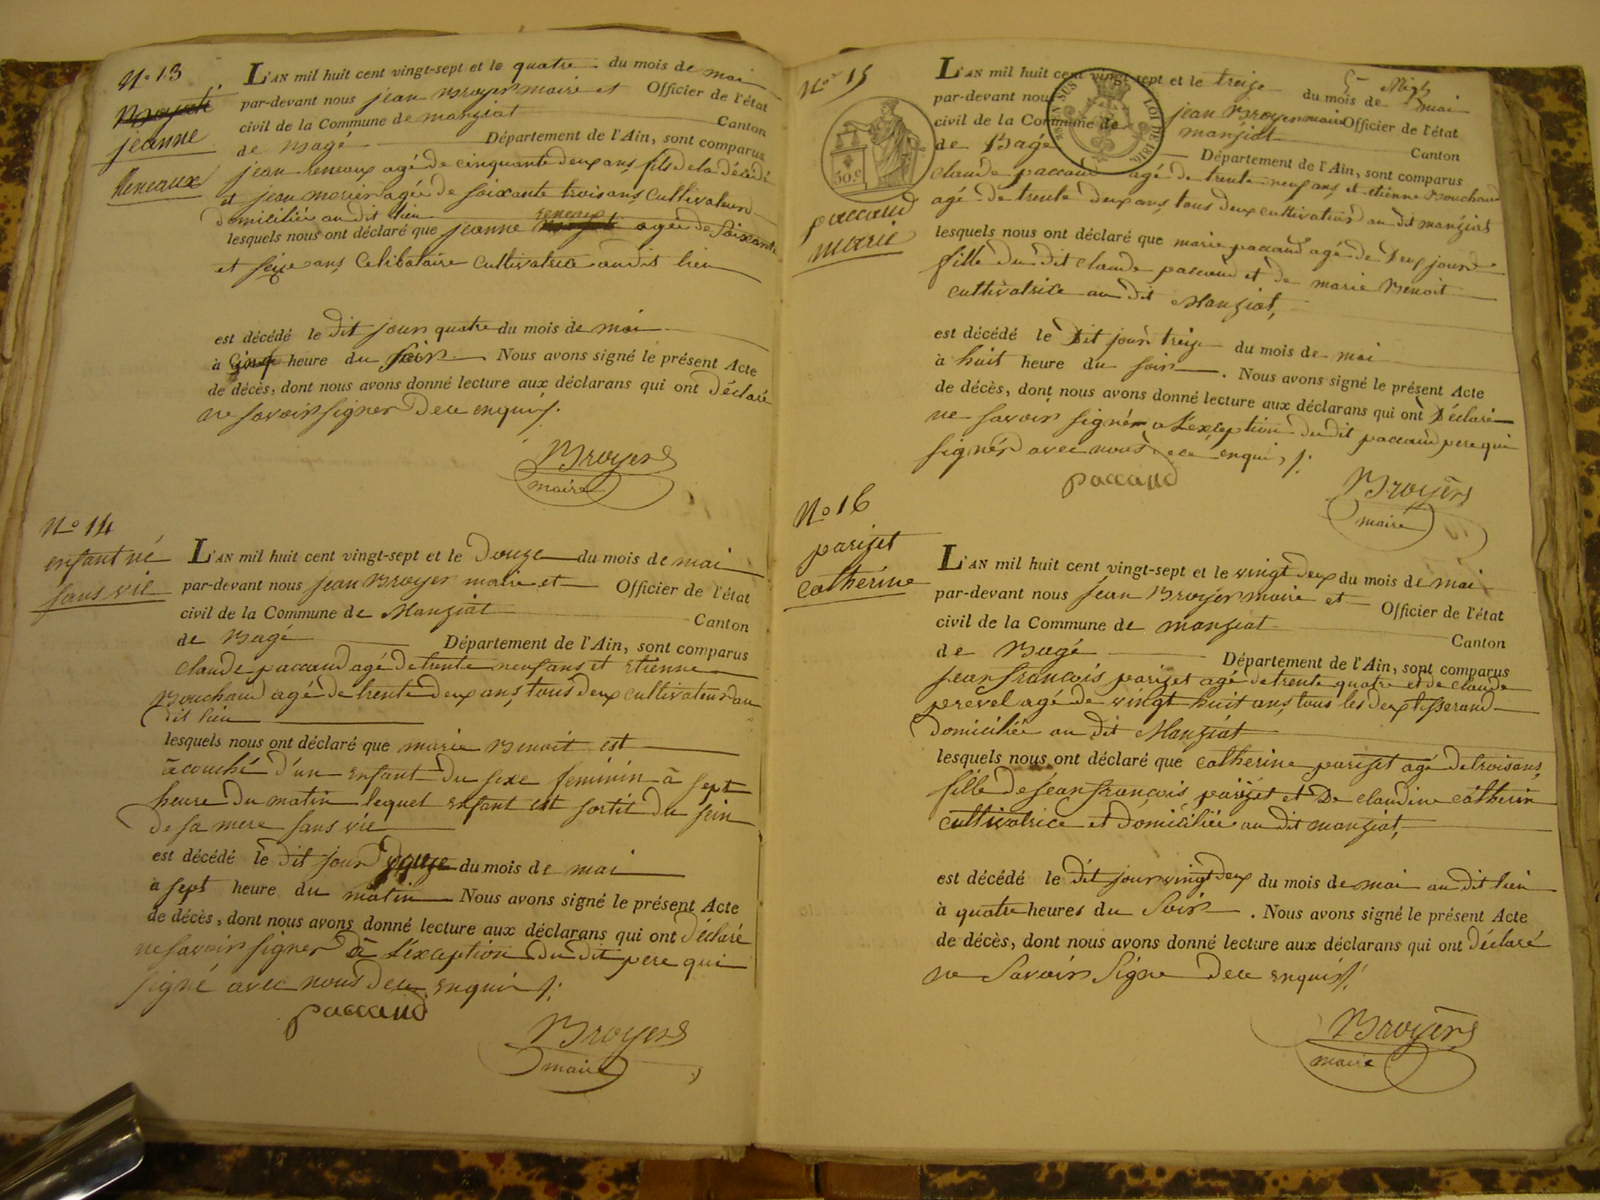 N° 13
Broyer
jeanne
Reneaux
L'AN mil huit cent vingt-sept et le quatre du mois de mai
par-devant nous jean Broyer maire et Officier de l'état
civil de la Commune de manziat Canton
de Bagé Département de l'Ain, sont comparus
jean Reneaux agé de cinquante deux ans fils de la décédé
et jean morier agé de soixante trois ans Cultivateurs
domiciliée au dit lieu
lesquels nous ont déclaré que jeanne reneaux agée de soixante
et seize ans Celibataire Cultivatrice au dit lieu
est décédé le dit jour quatre du mois de mai
à Cinq heure du soir Nous avons signé le présent Acte
de décès, dont nous avons donné lecture aux déclarans qui ont déclaré
ne savoir signer de ce enquis
Broyer
maire
N° 14
enfant né
sans vie
L'AN mil huit cent vingt-sept et le Douze du mois de mai
par-devant nous jean Broyer maire et Officier de l'état
civil de la Commune de Manziat Canton
de Bagé Département de l'Ain, sont comparus
Claude paccaud agé de trente neuf ans et Etienne
Bouchaud agé de trente deux ans, tous deux cultivateurs au
dit lieu
lesquels nous ont déclaré que marie Benoit est
acouché d'un enfant du sexe feminin à sept
heure du matin lequel enfant est sortit du sein
de sa mere sans vie
est décédé le dit jour douze du mois de mai
à sept heure du matin Nous avons signé le présent Acte
de décès, dont nous avons donné lecture aux déclarans qui ont déclaré
ne savoir signer à l'exception du dit pere qui
signé avec nous de ce enquis
paccaud
Broyer
maire
N° 15
50.c
paccaud
marie
LOI DE 1816
L'AN mil huit cent vingt-sept et le treize du mois de mai
par-devant nous jean Broyer maire Officier de l'état
civil de la Commune de manziat Canton
de Bagé Département de l'Ain, sont comparus
Claude paccaud agé de trente neuf ans et etienne Bouchaud
agé de trente deux ans, tous deux cultivateur au dit manziat
lesquels nous ont déclaré que marie paccaud agé de Deux jours
fille du dit claude paccaud et de marie Benoit
cultivatrice au dit Manziat,
est décédé le Dit jour treize du mois de mai
à huit heure du soir . Nous avons signé le présent Acte
de décès, dont nous avons donné lecture aux déclarans qui ont Déclaré
ne savoir signér a L'exception du dit paccaud pere qui
signér avec nous de ce enquis
paccaud
Broyèr
maire
N° 16
pariset
Catherine
L'AN mil huit cent vingt-sept et le vingt deux du mois de mai
par-devant nous jean Broyer maire et Officier de l'état
civil de la Commune de manziat Canton
de Bagé Département de l'Ain, sont comparus
jean francois pariset agé de trente quatre et de claude
prevel agé de vingt huit ans, tous les deux tisserand
domiciliée au dit Manziat
lesquels nous ont déclaré que catherine pariset agé de trois ans,
fille de jean francois pariset et De claudine catherin
cultivatrice et domiciliée au dit manziat,
est décédé le dit jour vingt deux du mois de mai au dit lieu
à quatre heures du Soir . Nous avons signé le présent Acte
de décès, dont nous avons donné lecture aux déclarans qui ont déclaré
ne Savoir Signe de ce enquis
Broyèr
maire